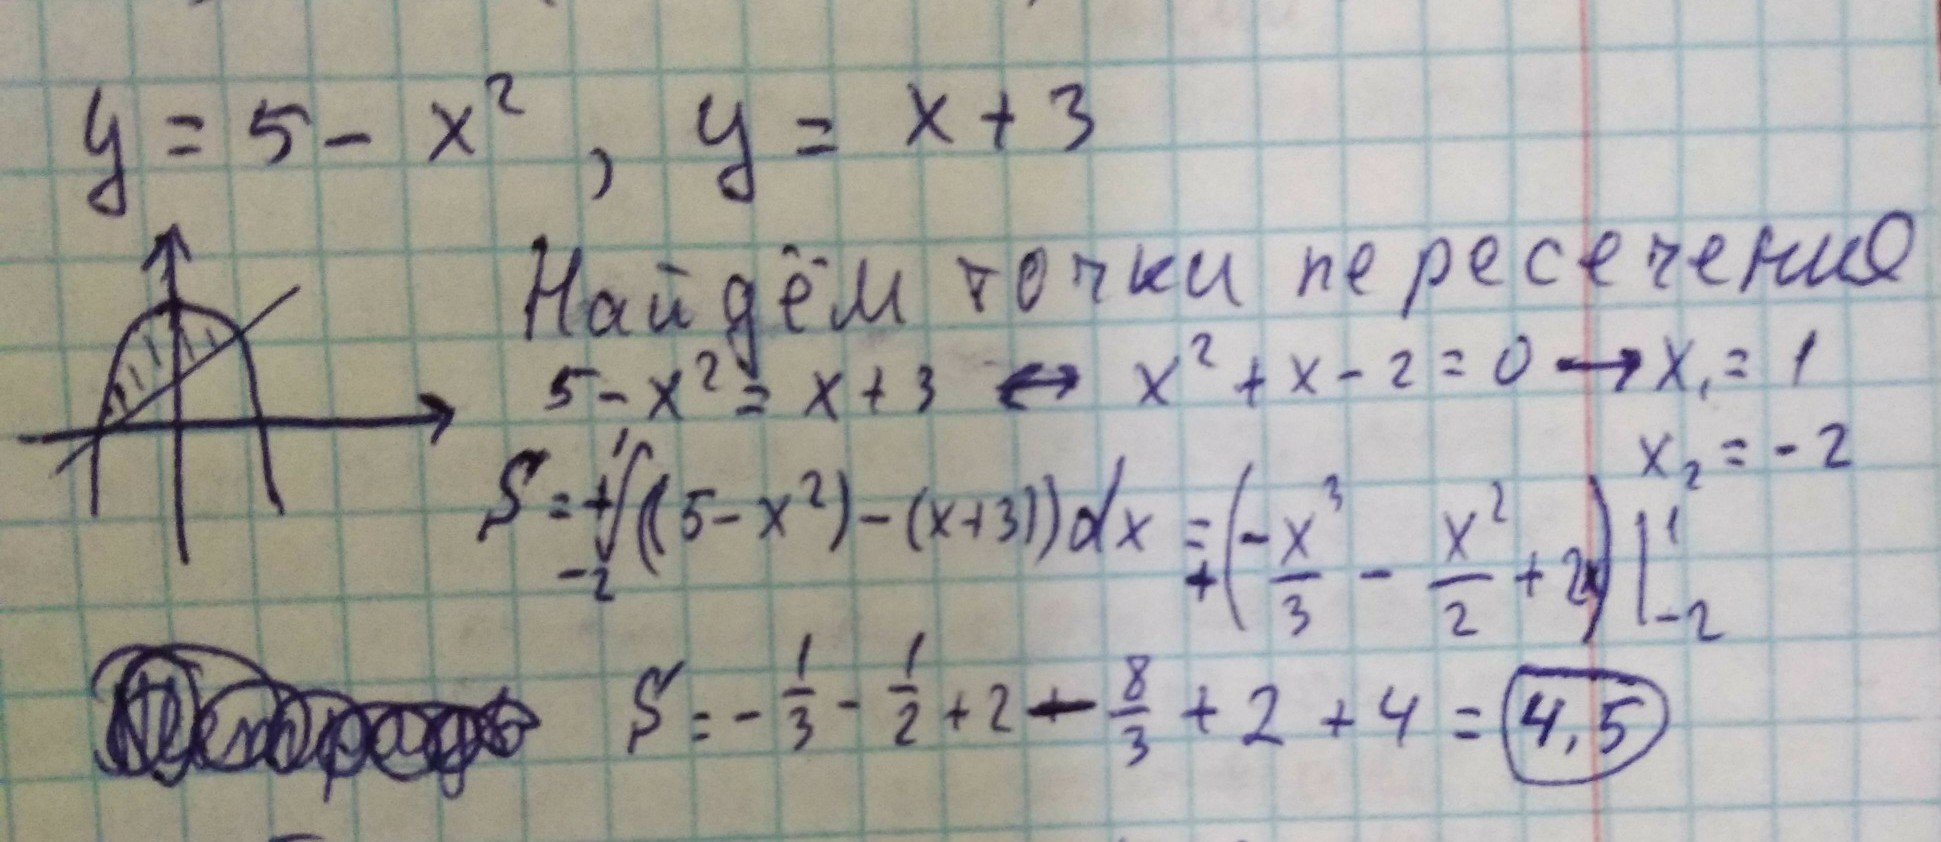 y = 5 - x², y = x + 3
Найдём точки пересечения
5 - x² = x + 3 ↔ x² + x - 2 = 0 → x₁ = 1
x₂ = -2
S = + ∫₋₂¹ ((5 - x²) - (x+3)) dx = + (-x³/3 - x²/2 + 2x) |₋₂¹
S = - 1/3 - 1/2 + 2 - 8/3 + 2 + 4 = 4,5